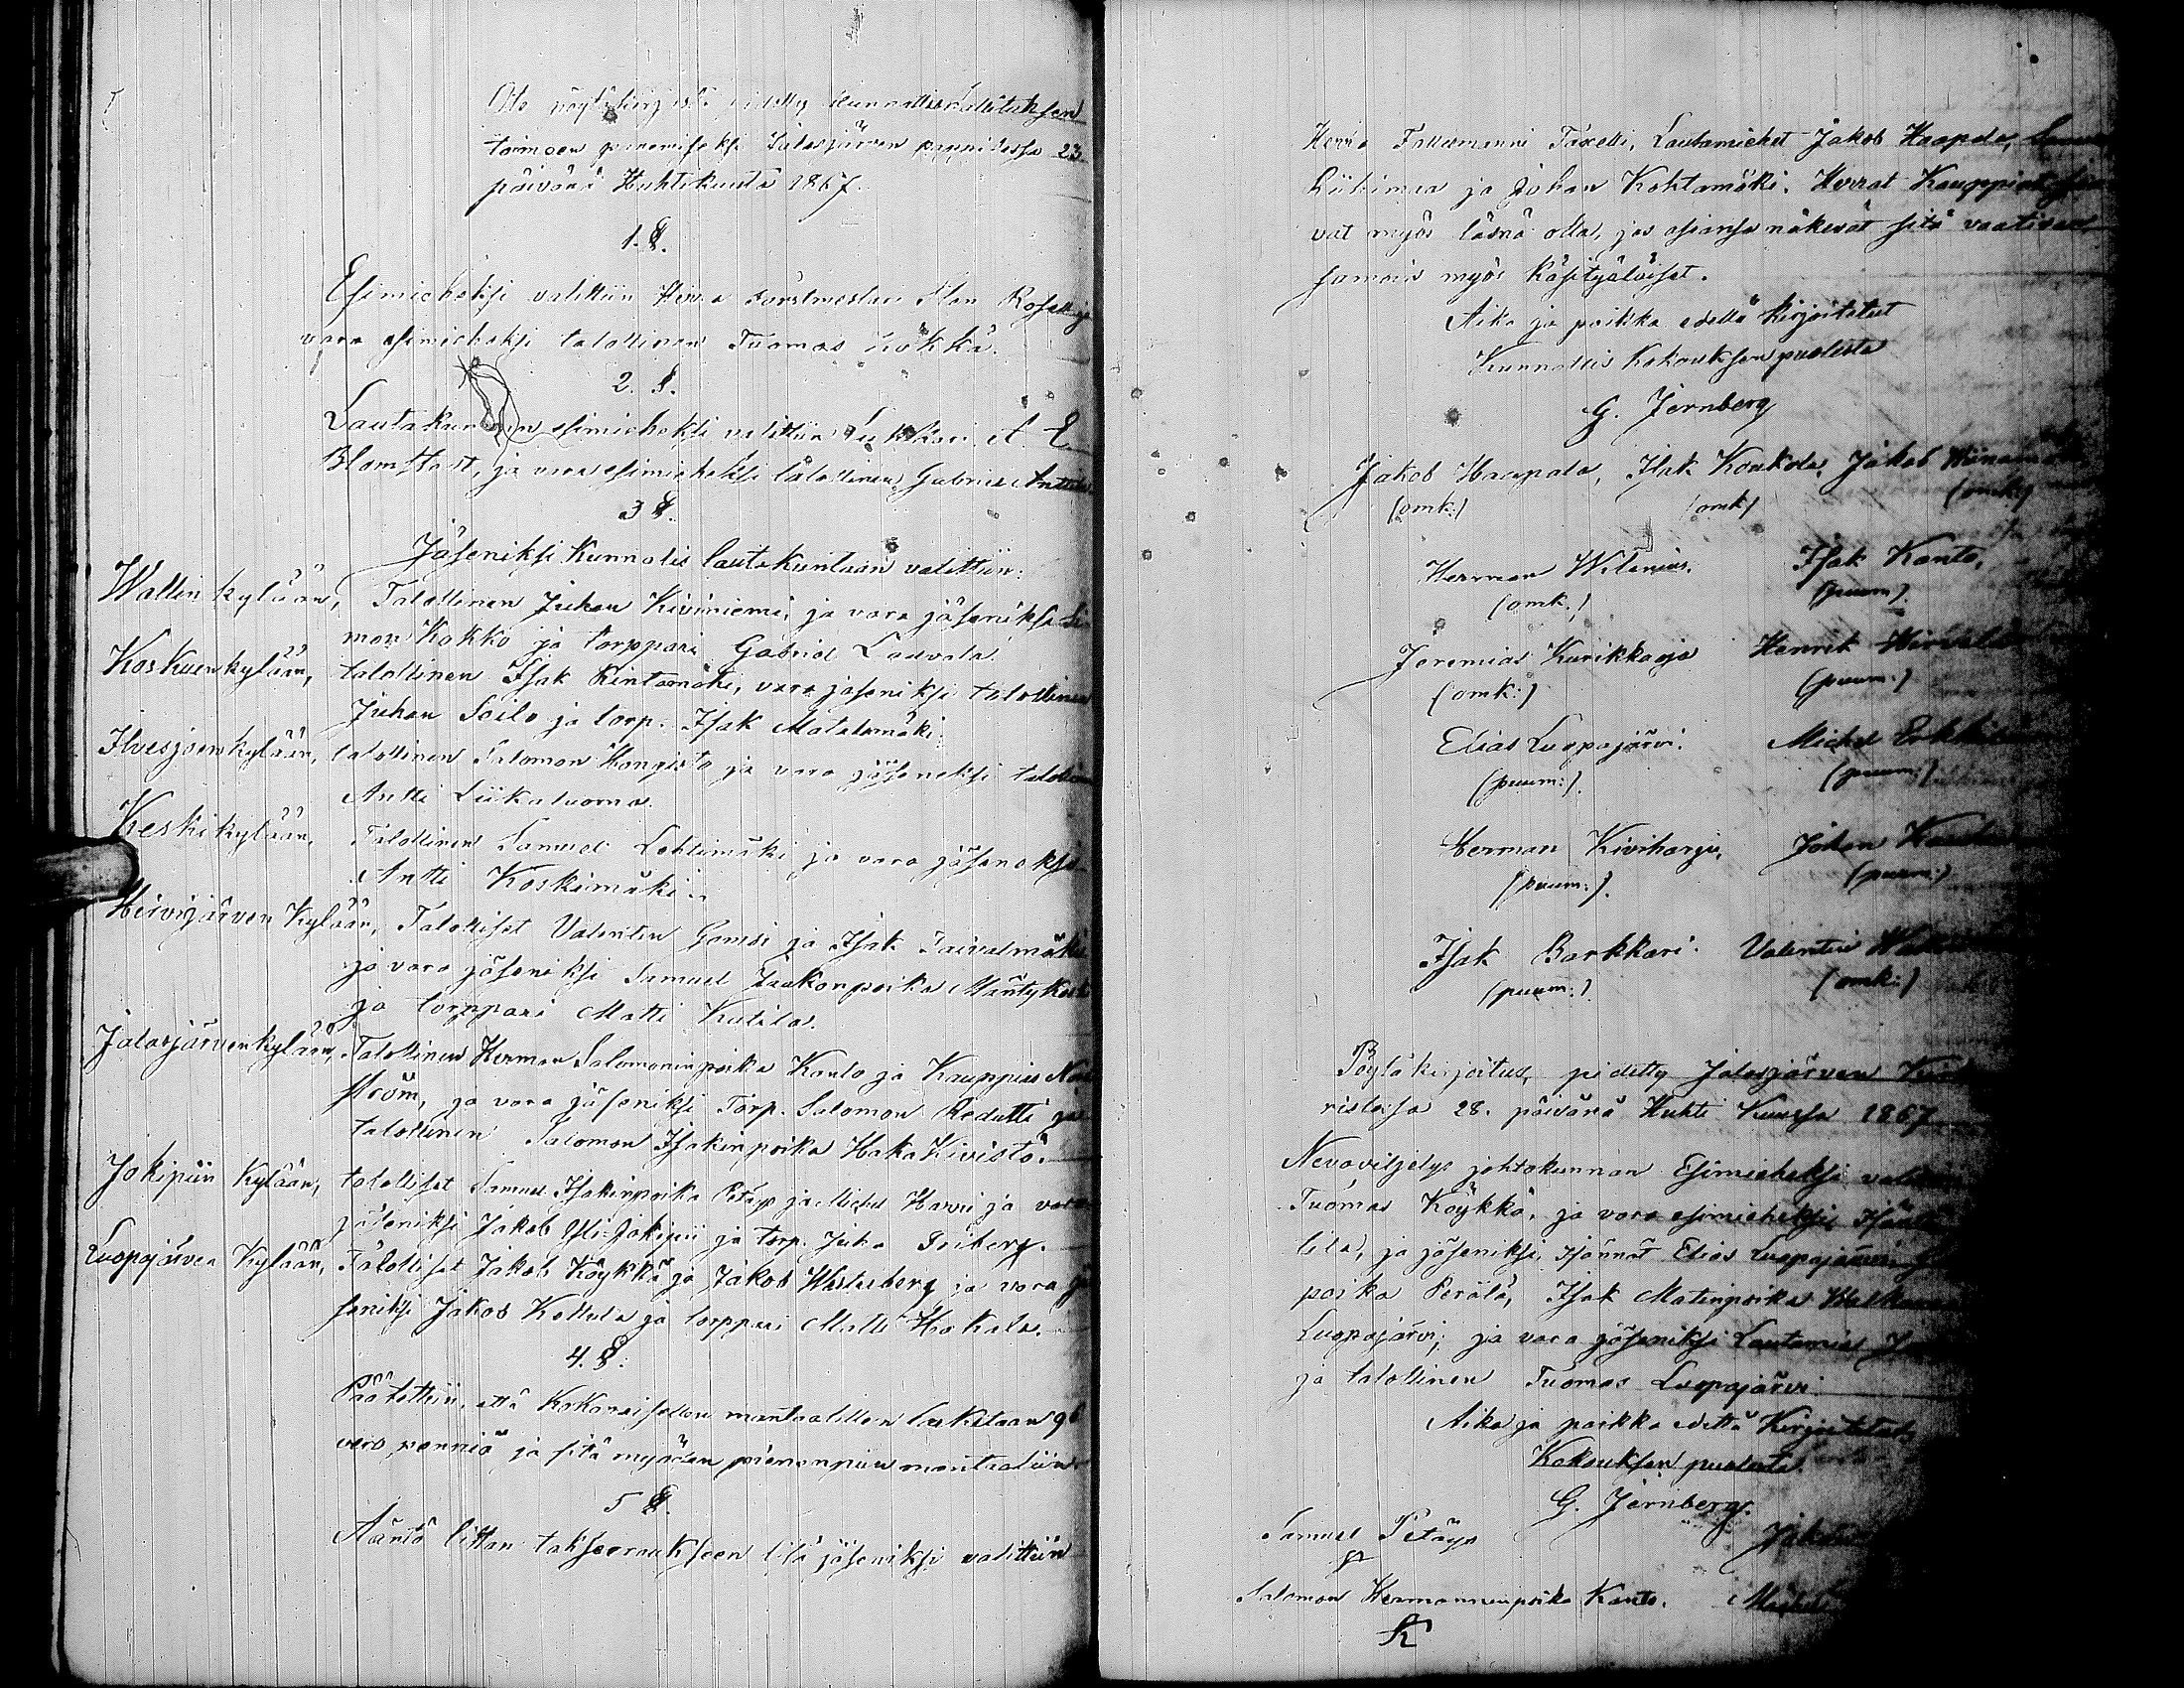 Ote pöytäkirjasta pidetty Kunnallishallituksen
toimeen panemiseksi Jalasjärven pappilassa 23
päivänä Huhtikuuta 1867.
1. §.
Esimieheksi valittiin Herra
vara esimieheksi talollinen Tuomas Köykkä.
2. §.
Lautakunnan esimieheksi valittiin Lukkari A. E.
Blomstast, ja vara esimieheksi talollinen Gabriel Anttila
3 §.
Jäseniksi Kunnalis lautakuntaan valittiin:
Wallin kylään, Talollinen Juhan Kiviniemi, ja vara jäseniksi Si
mon Kokko ja torppari Gabriel Lauvala.
Koskuenkylään, talollinen Isak Rintamäki, vara jäseniksi talollinen
Juhan Soilo ja torp. Isak Matalamäki.
Ilvesjoenkylään, talollinen Salomon Hangisto ja vara jäseneksi talollinen
Antti Liikaluoma.
Keskikylään, Talollinen Samuel Lehtimäki ja vara jäseneksi
Antti Koskimäki.
Hirvijärven Kylään, Talolliset Valentin Gamsi ja Isak Taivalmäki
ja vara jäseniksi Samuel Jaakonpoika Mäntykoski
ja torppari Matti Kutila.
Jalasjärvenkylään, Talollinen Herman Salomoninpoika Kanto ja Kauppias Nord
ström, ja vara jäseniksi Torp. Salomon Redutti ja
talollinen Salomon Isakinpoika HakaKivistö.
Jokipiin Kylään, talolliset Samuel Isakinpoika Petäys ja Michel Harri ja vara
jäseniksi Jakob Yli-Jokipii ja torp. Juha Friberg.
Luopajärven Kylään, Talolliset Jakob Köykkä ja Jakob Westerberg ja vara jä
seniksi Jakob Kottula ja torppari Matti Hokala.
4. §.
Päätettiin, että Kokonaisellen mantaalillen luketaan 96
vero penniä ja sitä myöden pienempiin mantaaliin.
5 §.
Ääntö littan takseeraukseen lisä jäseniksi valittiin
Herra Fallesmanni Taxell, Lautamiehet Jakob Haapala,
Riihimaa ja Johan Kohtamäki. Herrat Kauppiat
vat myös läsnä olla, jos asiansa näkevät sitä vaativan
samoin myös Käsityöläiset.
Aika ja paikka edellä Kirjoitetut
Kunnallis Kokouksen puolesta
G. Jernberg
Jakob Haapala, Isak Koukola, Jakob
(omk:) (omk) (omk)
Herrman Wilenius. Isak Kanto,
(omk.) (puum)
Jeremias Kurikkaoja Henrik
(omk:) (puum:)
Elias Luopajärvi. Michel
(puum:). (puum:)
Herman Kiviharju, Johan
(puum:). (puum:)
Isak Barkkari. Valentin
(puum:). (omk:)
Pöytäkirjoitus, pidetty Jalasjärven
ristossa 28. päivänä Huhti Kuussa 1867
Nevaviljelys johtokunnan Esimieheksi
Tuomas Köykkä, ja vara esimieheksi
lila, ja jäseniksi, isännät Elias Luopajärvi
poika Perälä, Isak Matinpoika
Luopajärvi, ja vara jäseniksi Lautamies
ja talollinen Tuomas Luopajärvi
Aika ja paikka edellä Kirjoitetut
Kokouksen puolesta
G. Jernberg.
Samuel Petäys
Salomon Hermanninpoika Kanto.